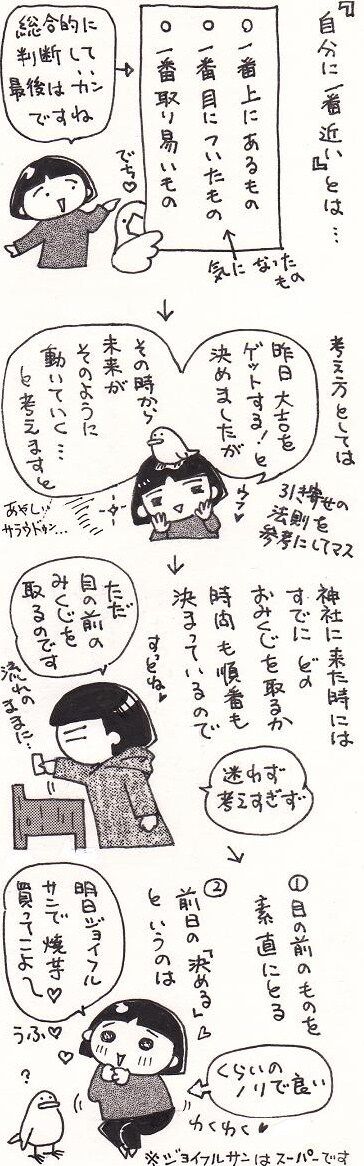 『自分に一番近い』とは…
○一番上にあるもの
○一番目についたもの
○一番取り易いもの
気になった
もの
総合的に
判断して
最後はカン
ですね
でち♡
考え方としては
昨日大吉を
ゲットする！と
決めましたが
その時から
未来が
そのように
動いていく…
と考えますと
ウフ♡
あやしい
サラウドゥン…
引き寄せの
法則を
参考にしてマス
神社に来た時には
すでにどの
おみくじを取るか
時間も順番も
決まっているので
ただ
目の前の
みくじを
取るのです
すっとね♡
流れの
ままに…
迷わず
考えすぎず
①目の前のものを
素直にとる
②前日の「決める」♡
というのは
明日ジョイフル
サンで焼芋♡
買ってこよ〜
うふ♡
?
くらいの
ノリで良い
わくわく♡
※ジョイフルサンはスーパーです